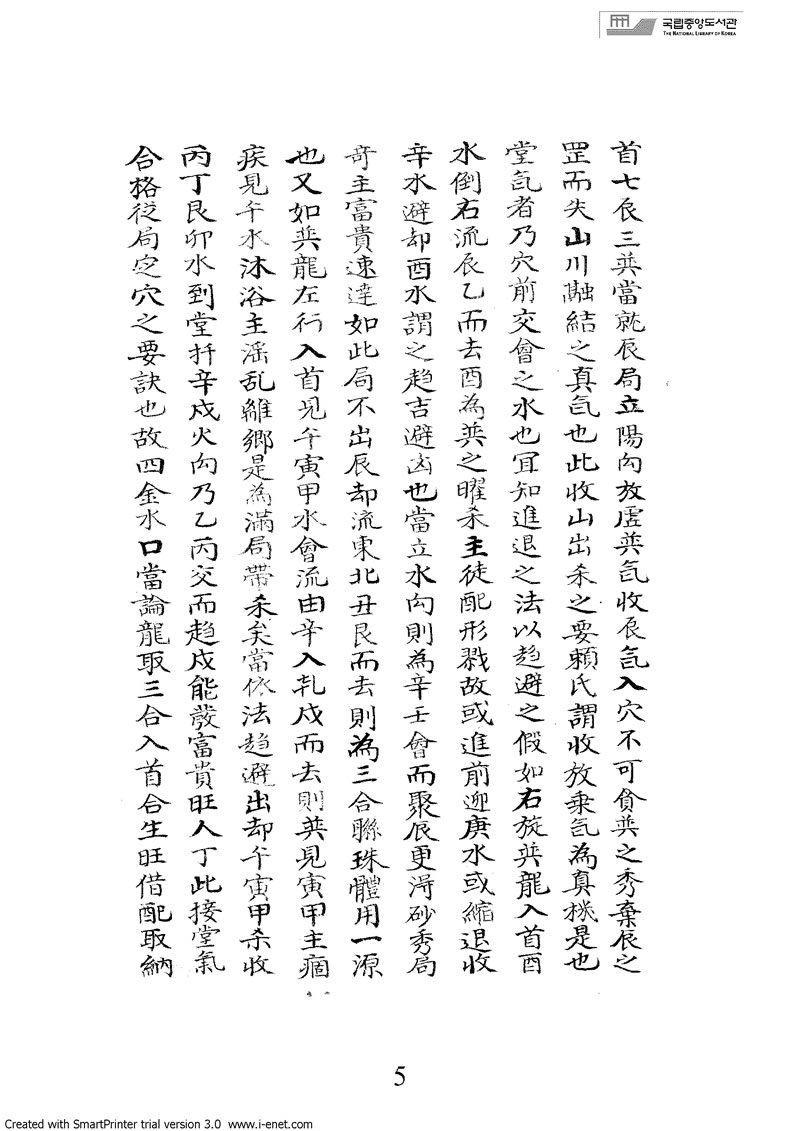 국립중앙도서관
THE NATIONAL LIBRARY OF KOREA
首七辰三巽當就辰局立陽向放虛巽氣收辰氣入穴不可貪巽之秀棄辰之
罡而失山川融結之真氣也此收山出杀之要賴氏謂收放乘氣為真機是也
堂氣者乃穴前交會之水也宜知進退之法以趋避之假如右旋巽龍入首酉
水倒右流辰乙而去酉為巽之曜杀主徒配形戮故或進前迎庚水或縮退收
辛水避却酉水謂之趋吉避凶也當立水向則為辛壬會而聚辰更淂砂秀局
竒主富貴速達如此局不出辰却流東北丑艮而去則為三合聯珠體用一源
也又如巽龍左行入首見午寅甲水會流由辛入乹戍而去則巽見寅甲主痼
疾見午水沐浴主滛乱離鄉是為滿局帶杀矣當依法趋避出却午寅甲杀收
丙丁艮卯水到堂扦辛戍火向乃乙丙交而趋戍能發富貴旺人丁此接堂氣
合格從局定穴之要訣也故四金水口當論龍取三合入首合生旺借配取納
5
Created with SmartPrinter trial version 3.0 www.i-enet.com